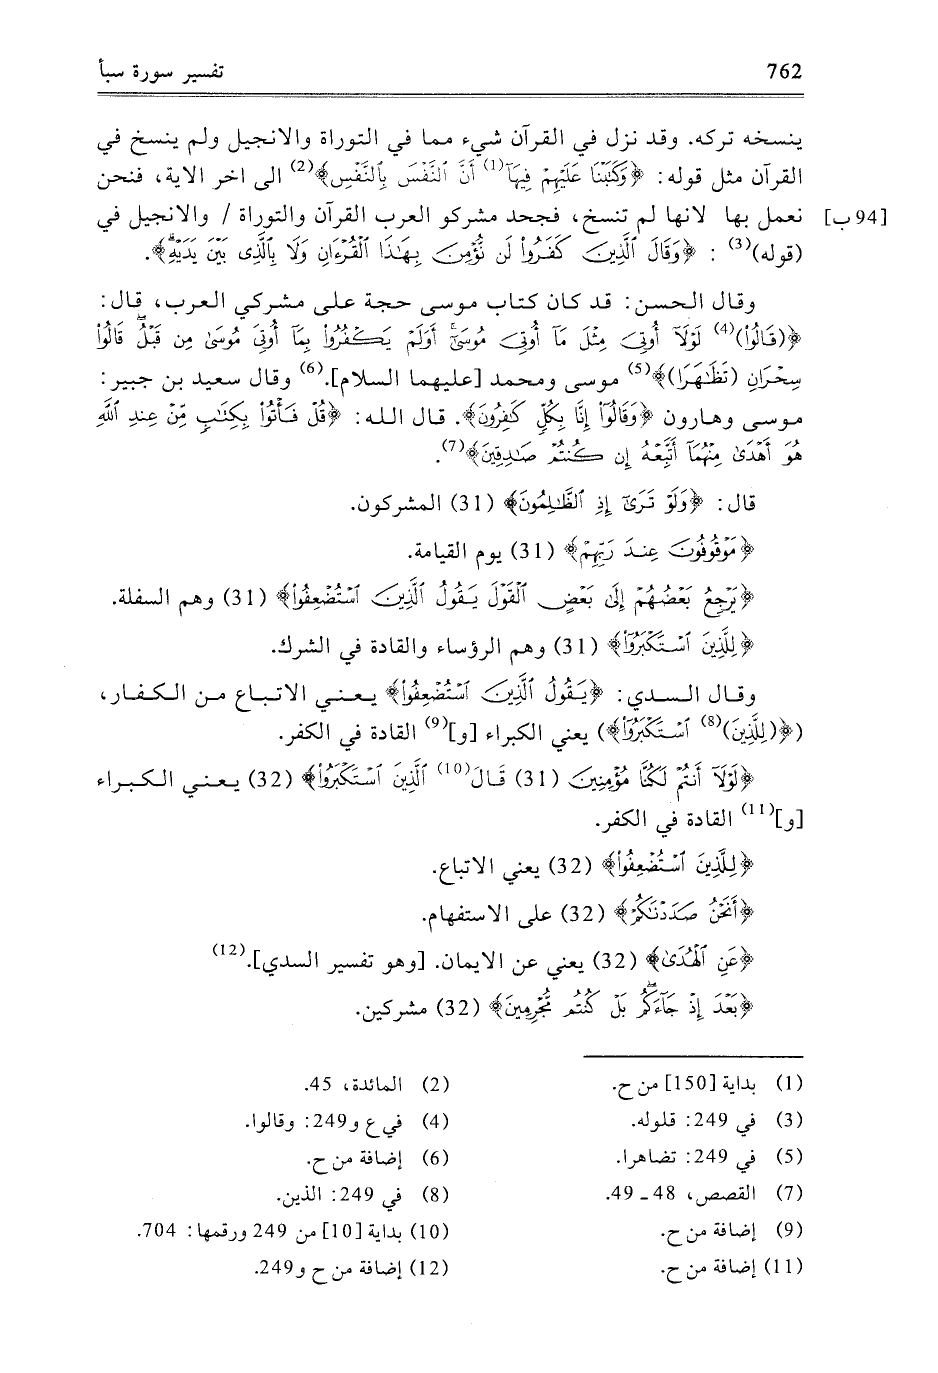 762 تفسير سورة سبأ
ينسخه تركه. وقد نزل في القرآن شيء مما في التوراة والانجيل ولم ينسخ في
القرآن مثل قوله: ﴿وَكَتَبْنَا عَلَيْهِمْ فِيهَآ(1) أَنَّ ٱلنَّفْسَ بِٱلنَّفْسِ﴾(2) الى اخر الاية، فنحن
[94ب] نعمل بها لانها لم تنسخ، فجحد مشركو العرب القرآن والتوراة / والانجيل في
(قوله)(3) : ﴿وَقَالَ ٱلَّذِينَ كَفَرُوا۟ لَن نُّؤْمِنَ بِهَـٰذَا ٱلْقُرْءَانِ وَلَا بِٱلَّذِى بَيْنَ يَدَيْهِۗ﴾.
وقال الحسن: قد كان كتاب موسى حجة على مشركي العرب، قال:
﴿(قَالُوا۟)(4) لَوْلَآ أُوتِىَ مِثْلَ مَآ أُوتِىَ مُوسَىٰٓۚ أَوَلَمْ يَكْفُرُوا۟ بِمَآ أُوتِىَ مُوسَىٰ مِن قَبْلُۖ قَالُوا۟
سِحْرَانِ (تَظَـٰهَرَا)﴾(5) موسى ومحمد [عليهما السلام].(6) وقال سعيد بن جبير:
موسى وهارون ﴿وَقَالُوٓا۟ إِنَّا بِكُلٍّ كَـٰفِرُونَ﴾. قال الله: ﴿قُلْ فَأْتُوا۟ بِكِتَـٰبٍ مِّنْ عِندِ ٱللَّهِ
هُوَ أَهْدَىٰ مِنْهُمَآ أَتَّبِعْهُ إِن كُنتُمْ صَـٰدِقِينَ﴾(7).
قال: ﴿وَلَوْ تَرَىٰٓ إِذِ ٱلظَّـٰلِمُونَ﴾ (31) المشركون.
﴿مَوْقُوفُونَ عِندَ رَبِّهِمْ﴾ (31) يوم القيامة.
﴿يَرْجِعُ بَعْضُهُمْ إِلَىٰ بَعْضٍ ٱلْقَوْلَ يَقُولُ ٱلَّذِينَ ٱسْتُضْعِفُوا۟﴾ (31) وهم السفلة.
﴿لِلَّذِينَ ٱسْتَكْبَرُوا۟﴾ (31) وهم الرؤساء والقادة في الشرك.
وقال السدي: ﴿يَقُولُ ٱلَّذِينَ ٱسْتُضْعِفُوا۟﴾ يعني الاتباع من الكفار،
(﴿(لِلَّذِينَ)(8) ٱسْتَكْبَرُوا۟﴾) يعني الكبراء [و](9) القادة في الكفر.
﴿لَوْلَآ أَنتُمْ لَكُنَّا مُؤْمِنِينَ (31) قَالَ(10) ٱلَّذِينَ ٱسْتَكْبَرُوا۟﴾ (32) يعني الكبراء
[و](11) القادة في الكفر.
﴿لِلَّذِينَ ٱسْتُضْعِفُوٓا۟﴾ (32) يعني الاتباع.
﴿أَنَحْنُ صَدَدْنَـٰكُمْ﴾ (32) على الاستفهام.
﴿عَنِ ٱلْهُدَىٰ﴾ (32) يعني عن الايمان. [وهو تفسير السدي].(12)
﴿بَعْدَ إِذْ جَآءَكُمۖ بَلْ كُنتُم مُّجْرِمِينَ﴾ (32) مشركين.
(1) بداية [150] من ح. (2) المائدة، 45.
(3) في 249: قلوله. (4) في ع و249: وقالوا.
(5) في 249: تضاهرا. (6) إضافة من ح.
(7) القصص، 48 ـ 49. (8) في 249: الذين.
(9) إضافة من ح. (10) بداية [10] من 249 ورقمها: 704.
(11) إضافة من ح. (12) إضافة من ح و249.